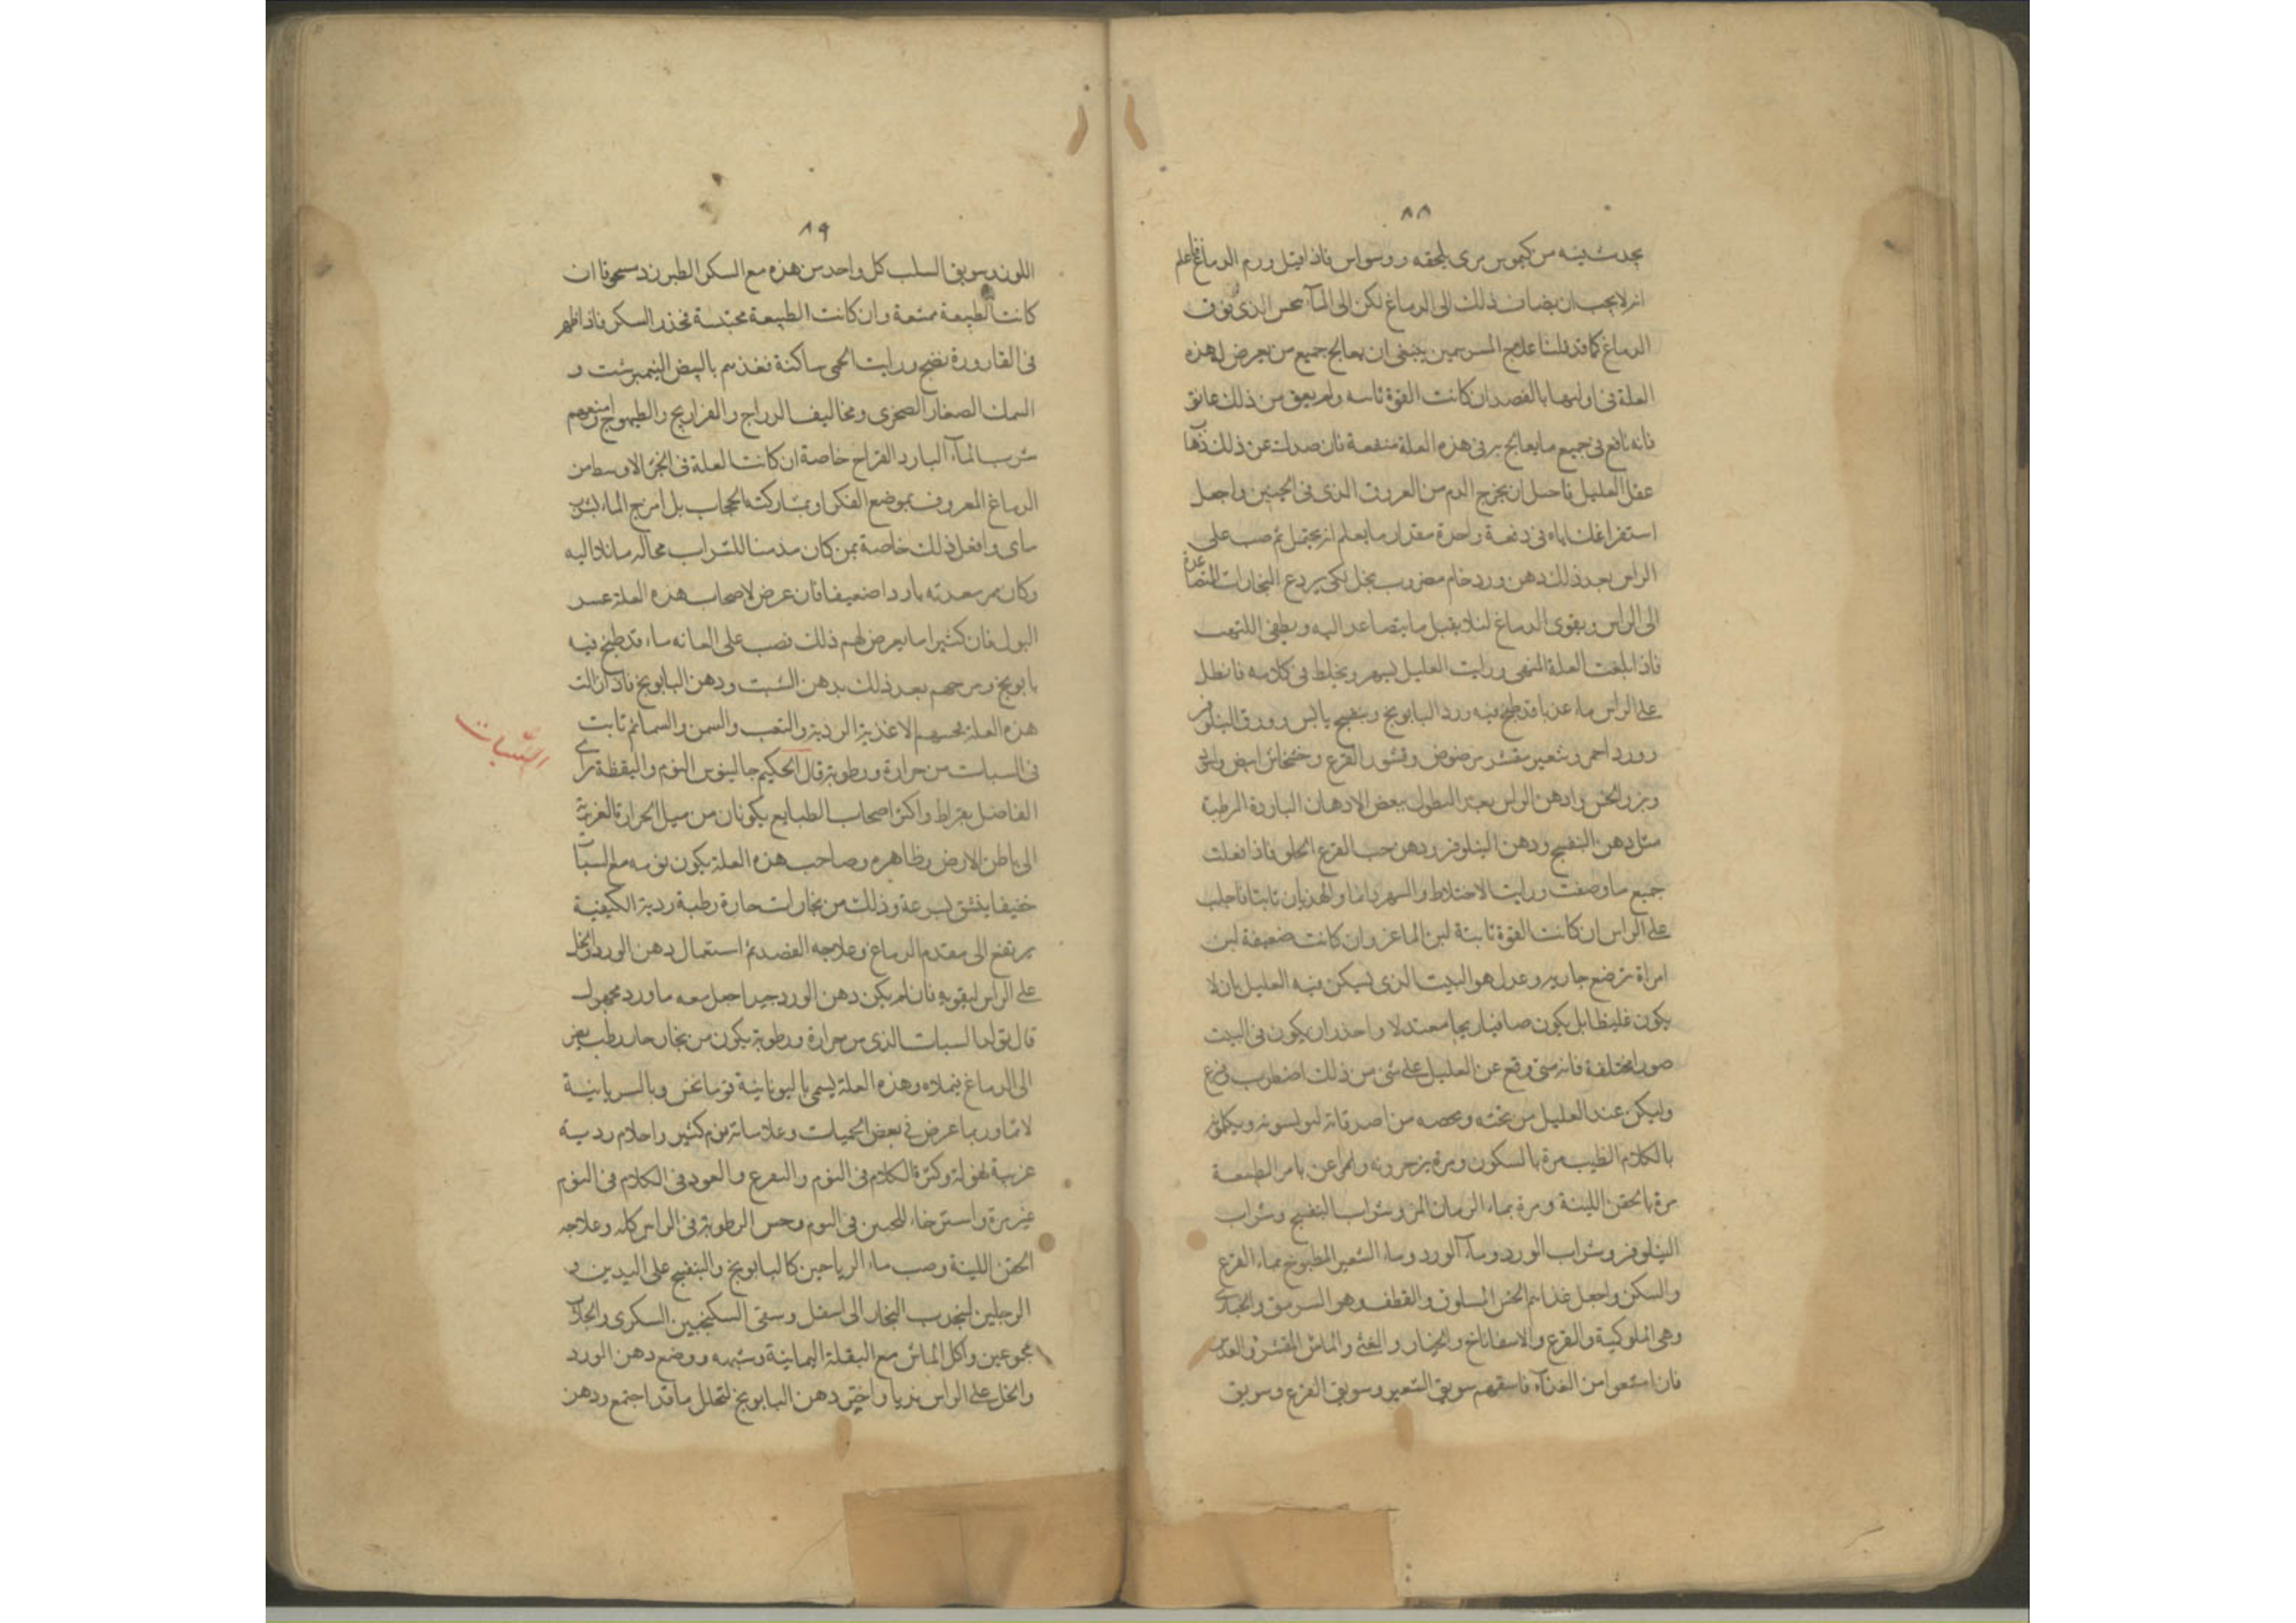 ٨٨
يحدث فيه من كيموس مرى يلحقه ووسواس فاذا قيل ورم الدماغ فاعلم
انه لا يجب ان يضاف ذلك الى الدماغ لكن الى الذى فوق
الدماغ كما قد قلنا علاج المسرسمين ينبغى ان يعالج جميع من يعرض له هذه
العلة فى اولها بالفصد ان كانت القوة ثابته ولم يعق من ذلك عائق
فانه نافع فى جميع ما يعالج به فى هذه العلة منفعة فان صدك عن ذلك ذهاب
عقل العليل فاحتل ان يخرج الدم من العروق الذى فى الجبين واجعل
استفراغك اياه فى دفعة واحدة مقدار ما يعلم انه يحتمل ثم صب على
الراس بعد ذلك دهن ورد خام مضروب بخل لكى يردع البخارات المتصاعدة
الى الراس ويقوى الدماغ لئلا يقبل ما يتصاعد اليه ويطفى اللهب
فاذا بلغت العلة المنتهى ورايت العليل يسهر ويخلط فى كلامه فانطل
على الراس ماء عذبا قد طبخ فيه ورد البابونج وبنفسج يابس وورق النيلوفر
وورد احمر وشعير مقشر مرضوض وقشور القرع وخشخاش ابيض
وبزر الخس وادهن الراس بعد النطول ببعض الادهان الباردة الرطبة
مثل دهن البنفسج ودهن النيلوفر ودهن حب القرع الحلو فاذا فعلت
جميع ما وصفت ورايت الاختلاط والسهر دائما والهذيان ثابتا فاحلب
على الراس ان كانت القوة ثابتة لبن الماعز وان كانت ضعيفة لبن
امراة ترضع جارية وعدل هوا البيت الذى يسكن فيه العليل بان لا
يكون غليظا بل يكون صافيا ريحا معتدلا واحذر ان يكون فى البيت
صورا مختلفة فانه متى وقع عن العليل على شى من ذلك اضطرب وفزع
وليكن عند العليل من يحبه ويخصه من اصدقائه ليونسونه ويكلمونه
بالكلام الطيب مرة بالسكون ومرة يزجرونه ولمرا عن بامر الطبيعة
مرة بالحقن اللينة ومرة بماء الرمان المز وشراب البنفسج وشراب
النيلوفر وشراب الورد وماء الورد وماء الشعير المطبوخ بماء القرع
والسكر واجعل غذائهم الخس المسلوق والقطف وهو السرمق والخبازى
وهى الملوكية والقرع والاسفاناخ والخيار والقثى والماش المقشر والعدس
فان امتنعوا من الغذآء فاسقهم سويق الشعير وسويق القرع وسويق
٨٩
اللوز وسويق السلب كل واحد من هذه مع السكر الطبرزد مسحوقا ان
كانت الطبيعة ممتنعة وان كانت الطبيعة محتبسة فحذر السكر فاذا ظهر
فى القارورة نضج ورايت الحمى ساكنة فغذهم بالبيض النيمبرشت و
السمك الصغار الصخرى ومخاليف الدراج والفراريج والطيهوج وامنعهم
شرب المآء البارد القراح خاصة ان كانت العلة فى الجزء الاوسط من
الدماغ المعروف بموضع الفكر او بمشاركته الحجاب بل امزج الماء بشراب
ماى وافعل ذلك خاصة بمن كان مدمنا للشراب محاله مائلا اليه
وكان مر معدته باردا ضعيفا فان عرض لاصحاب هذه العلة عسر
البول فان كثيرا ما يعرض لهم ذلك نصب على العانه ماء قد طبخ فيه
بابونج ومرخهم بعد ذلك بدهن الشبت ودهن البابونج فاذا زالت
هذه العلة الاغذية الردية والتعب والسمن والسمائم ثابت
السُّبات
فى السبات من حرارة ورطوبة قال الحكيم جالينوس النوم واليقظة راى
الفاضل بقراط واكثر اصحاب الطبايع يكونان من ميل الحرارة الغريزية
الى باطن الارض وظاهره وصاحب هذه العلة يكون نومه مع السبات
خفيفا يفشق بسرعة وذلك من بخارات حارة رطبة ردية الكيفية
يرتفع الى مقدم الدماغ وعلاجه الفصد ثم استعمال دهن الورد والخل
على الراس ليقويه فان لم يكن دهن الورد جيدا اجعل معه ماورد محمول
قال تولد السبات الذى من حرارة ورطوبة يكون من بخار حار رطب
الى الدماغ فيملاه وهذه العلة يسمى باليونانية قوماغس وبالسريانية
لاثا وربما عرض فى بعض الحميات وعلاماته نوم كثير واحلام ردية
غريبة وكثرة الكلام فى النوم والفزع والعود فى الكلام فى النوم
غير مرة واسترخاء للجبين فى النوم وحس الرطوبة فى الراس كله وعلاجه
الحقن اللينة وصب ماء الرياحين كالبابونج والبنفسج على اليدين و
الرجلين ليجذب البخار الى اسفل وسقى السكنجبين السكرى والجلاب
مجموعين واكل الماش مع البقلة اليمانية وشبهه ووضع دهن الورد
والخل على الراس بديا واختم دهن البابونج لتحلل ما قد اجتمع ودهن